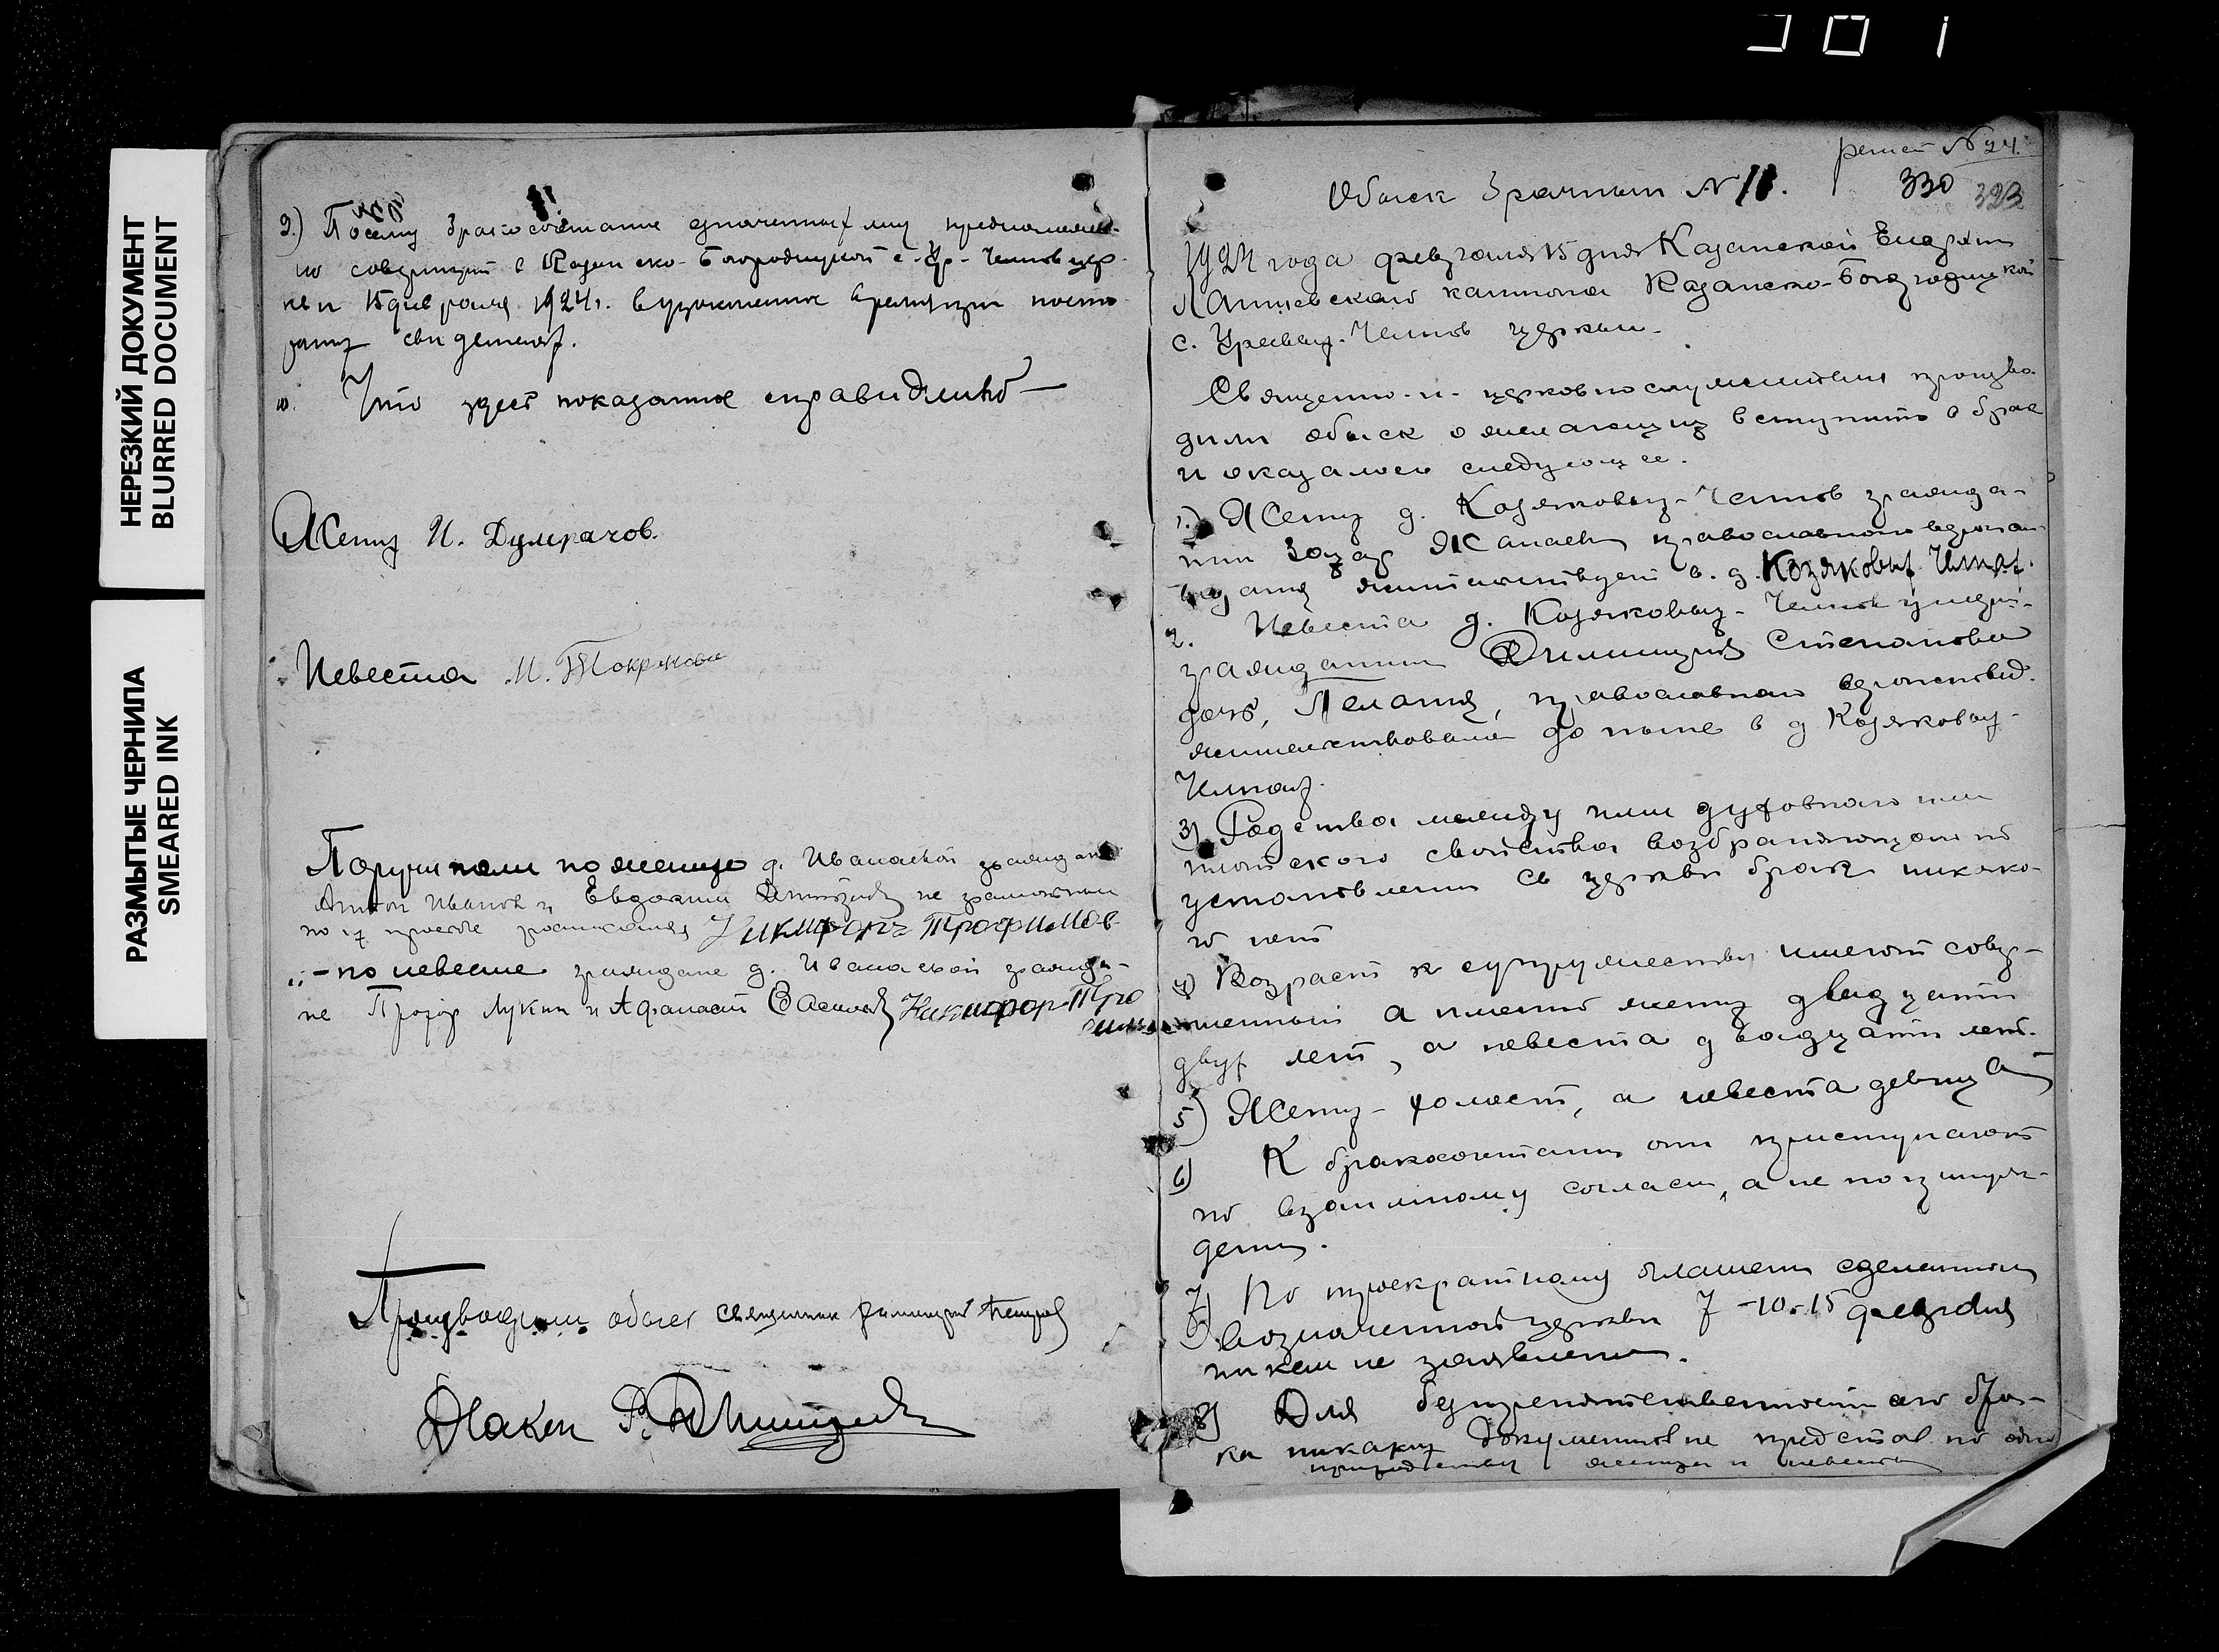 НЕРЕЗКИЙ ДОКУМЕНТ
BLURRED DOCUMENT
РАЗМЫТЫЕ ЧЕРНИЛА
SMEARED INK
9.) Посему бракосочетание означенных лиц предположе-
но совершить в Казанско-Богородицкой с. Ур.-Чепов цер-
кви 15 февраля 1924 г. в узаконенное время при посто
ронних свидетелях.
10. Что здесь показанное справедливо
Жених И.
Невеста
Поручители по женихе д. Ивановой граждане
Антон Иванов и Евдоким не грамотны
по их просьбе Никифор Трофимов
- по невесте граждане д. Ивановой гражда-
не Лукин и Афанасий Васильев Никифор Тро
фимов
Производили обыск священник Петров
Дьякон
Обыск брачный № 18.
№ 24.
330 323
1924 года февраля 15 дня Казанской Епархии
Лаишевского кантона Казанско-Богородицкой
с. церкви
Священно-и-церковнослужители произво-
дили обыск о желающих вступить в брак
и оказалось следующее.
1.) Жених д. Козяковых-Челнов гражда-
нин православного вероиспо-
ведания жительствует в д. Козяковых Челнах.
2. Невеста д. Козяковых-Челнов умерш.
гражданина Степанова
дочь, Пелагия, православного вероисповед.
жительствовала до ныне в д Козяковых-
Челнах.
3) Родства между ними духовного или
плотского свойства возбраняющего по
установлению св церкви брак никако-
го нет
4) Возраст к супружеству имеют совер-
шенный а именно жених двадцати
двух лет, а невеста двадцати лет.
5) Жених-холост, а невеста девица
6) К бракосочетанию они приступают
по взаимному согласию, а не по принуж-
дению.
7) По троекратному оглашению сделанном
в означенной церкви 7-10-15 февраля
никем не заявлено.
8) Для безпрепятственности сего бра-
ка никаких документов не представлено
жениха и невесты